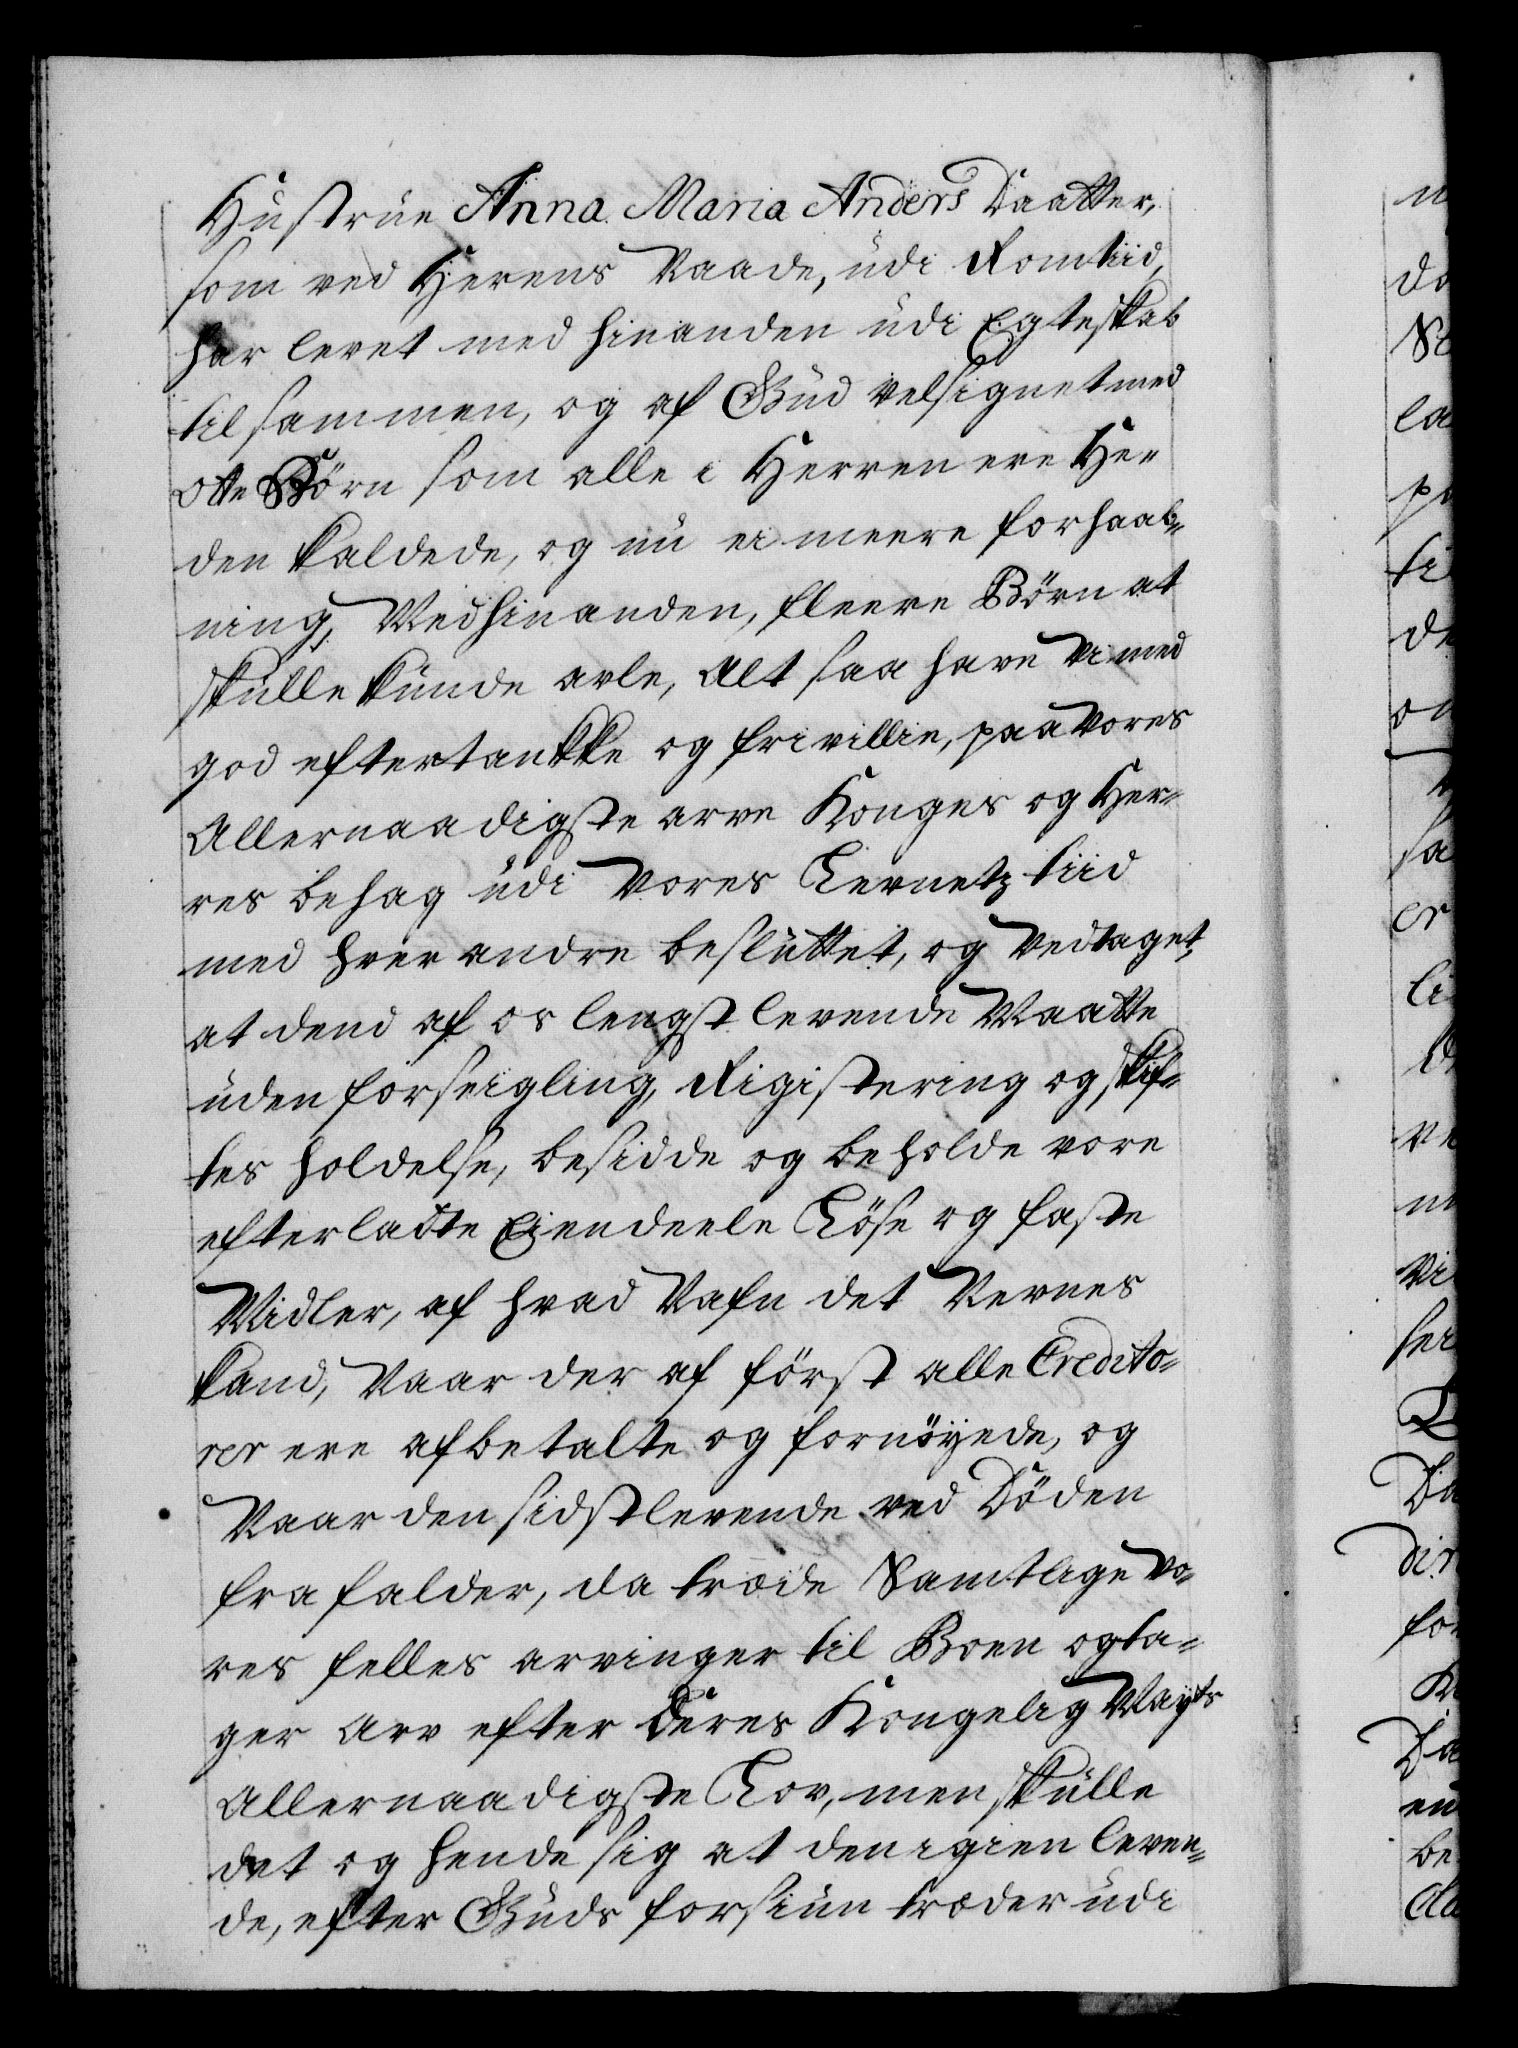 Hustrue Anna Maria Anders Daatter,
som ved Herrens Naade, udi Rom tiid,
har levet med hinanden udi Egteskab
til sammen, og af Gud velsignet med
otte Börn som alle i Herren ere He¬
den kaldede, og nu ei meere forhaab¬
ning, Med hinanden, fleere Börn at
skulle kunde avle, Alt saa have vi med
god eftertankke og frivillie, paa vores
Allernaadigste arve Konges og Her¬
res behag udi vores Levnetz tiid
med hver andre besluttet, og vedtaget,
at dend af os lengst levende Maatte
uden forseigling, Rigistering og skif¬
tes holdelse, besidde og beholde vore
efterladte Eiendeele Löse og faste
Midler, af hvad Nafn det Nevnes
kand, Naar der af först alle Credito¬
rer ere afbetalte og fornöyede, og
Naar den sidst levende ved Döden
fra falder, da træde Samtlige vo¬
res felles arvinger til Boen og ta¬
ger Arv efter Deres Kongelig Mayts
Allernaadigste Lov, men skulle
det og hende sig at den igien leven¬
de, efter Guds forsiun træder udi